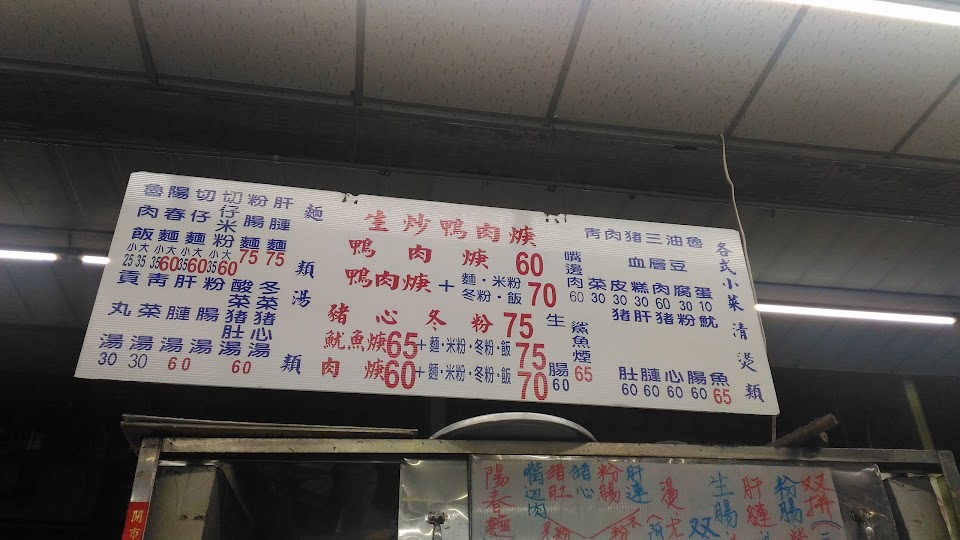 麵類
魯肉飯 小25 大35
陽春麵 小35 大60
切仔麵 小35 大60
切仔米粉 小35 大60
粉腸麵 75
肝腱麵 75
湯類
貢丸湯 30
青菜湯 30
肝腱湯 60
粉腸湯
酸菜豬肚湯 60
冬菜豬心湯
生炒鴨肉焿
鴨肉焿 60
鴨肉焿+麵・米粉・冬粉・飯 70
豬心冬粉 75
魷魚焿 65 +麵・米粉・冬粉・飯 75
肉焿 60 +麵・米粉・冬粉・飯 70
各式小菜清燙類
嘴邊肉 60
青菜 30
肉皮 30
豬血糕 30
三層肉 60
油豆腐 30
魯蛋 10
生腸 60
鯊魚煙 65
豬肚 60
肝腱 60
豬心 60
粉腸 60
魷魚 65
陽春麵
嘴边肉
豬肚
豬心
粉腸
肝連
燙
双
生腸
肝腱
粉腸
双拼
開市